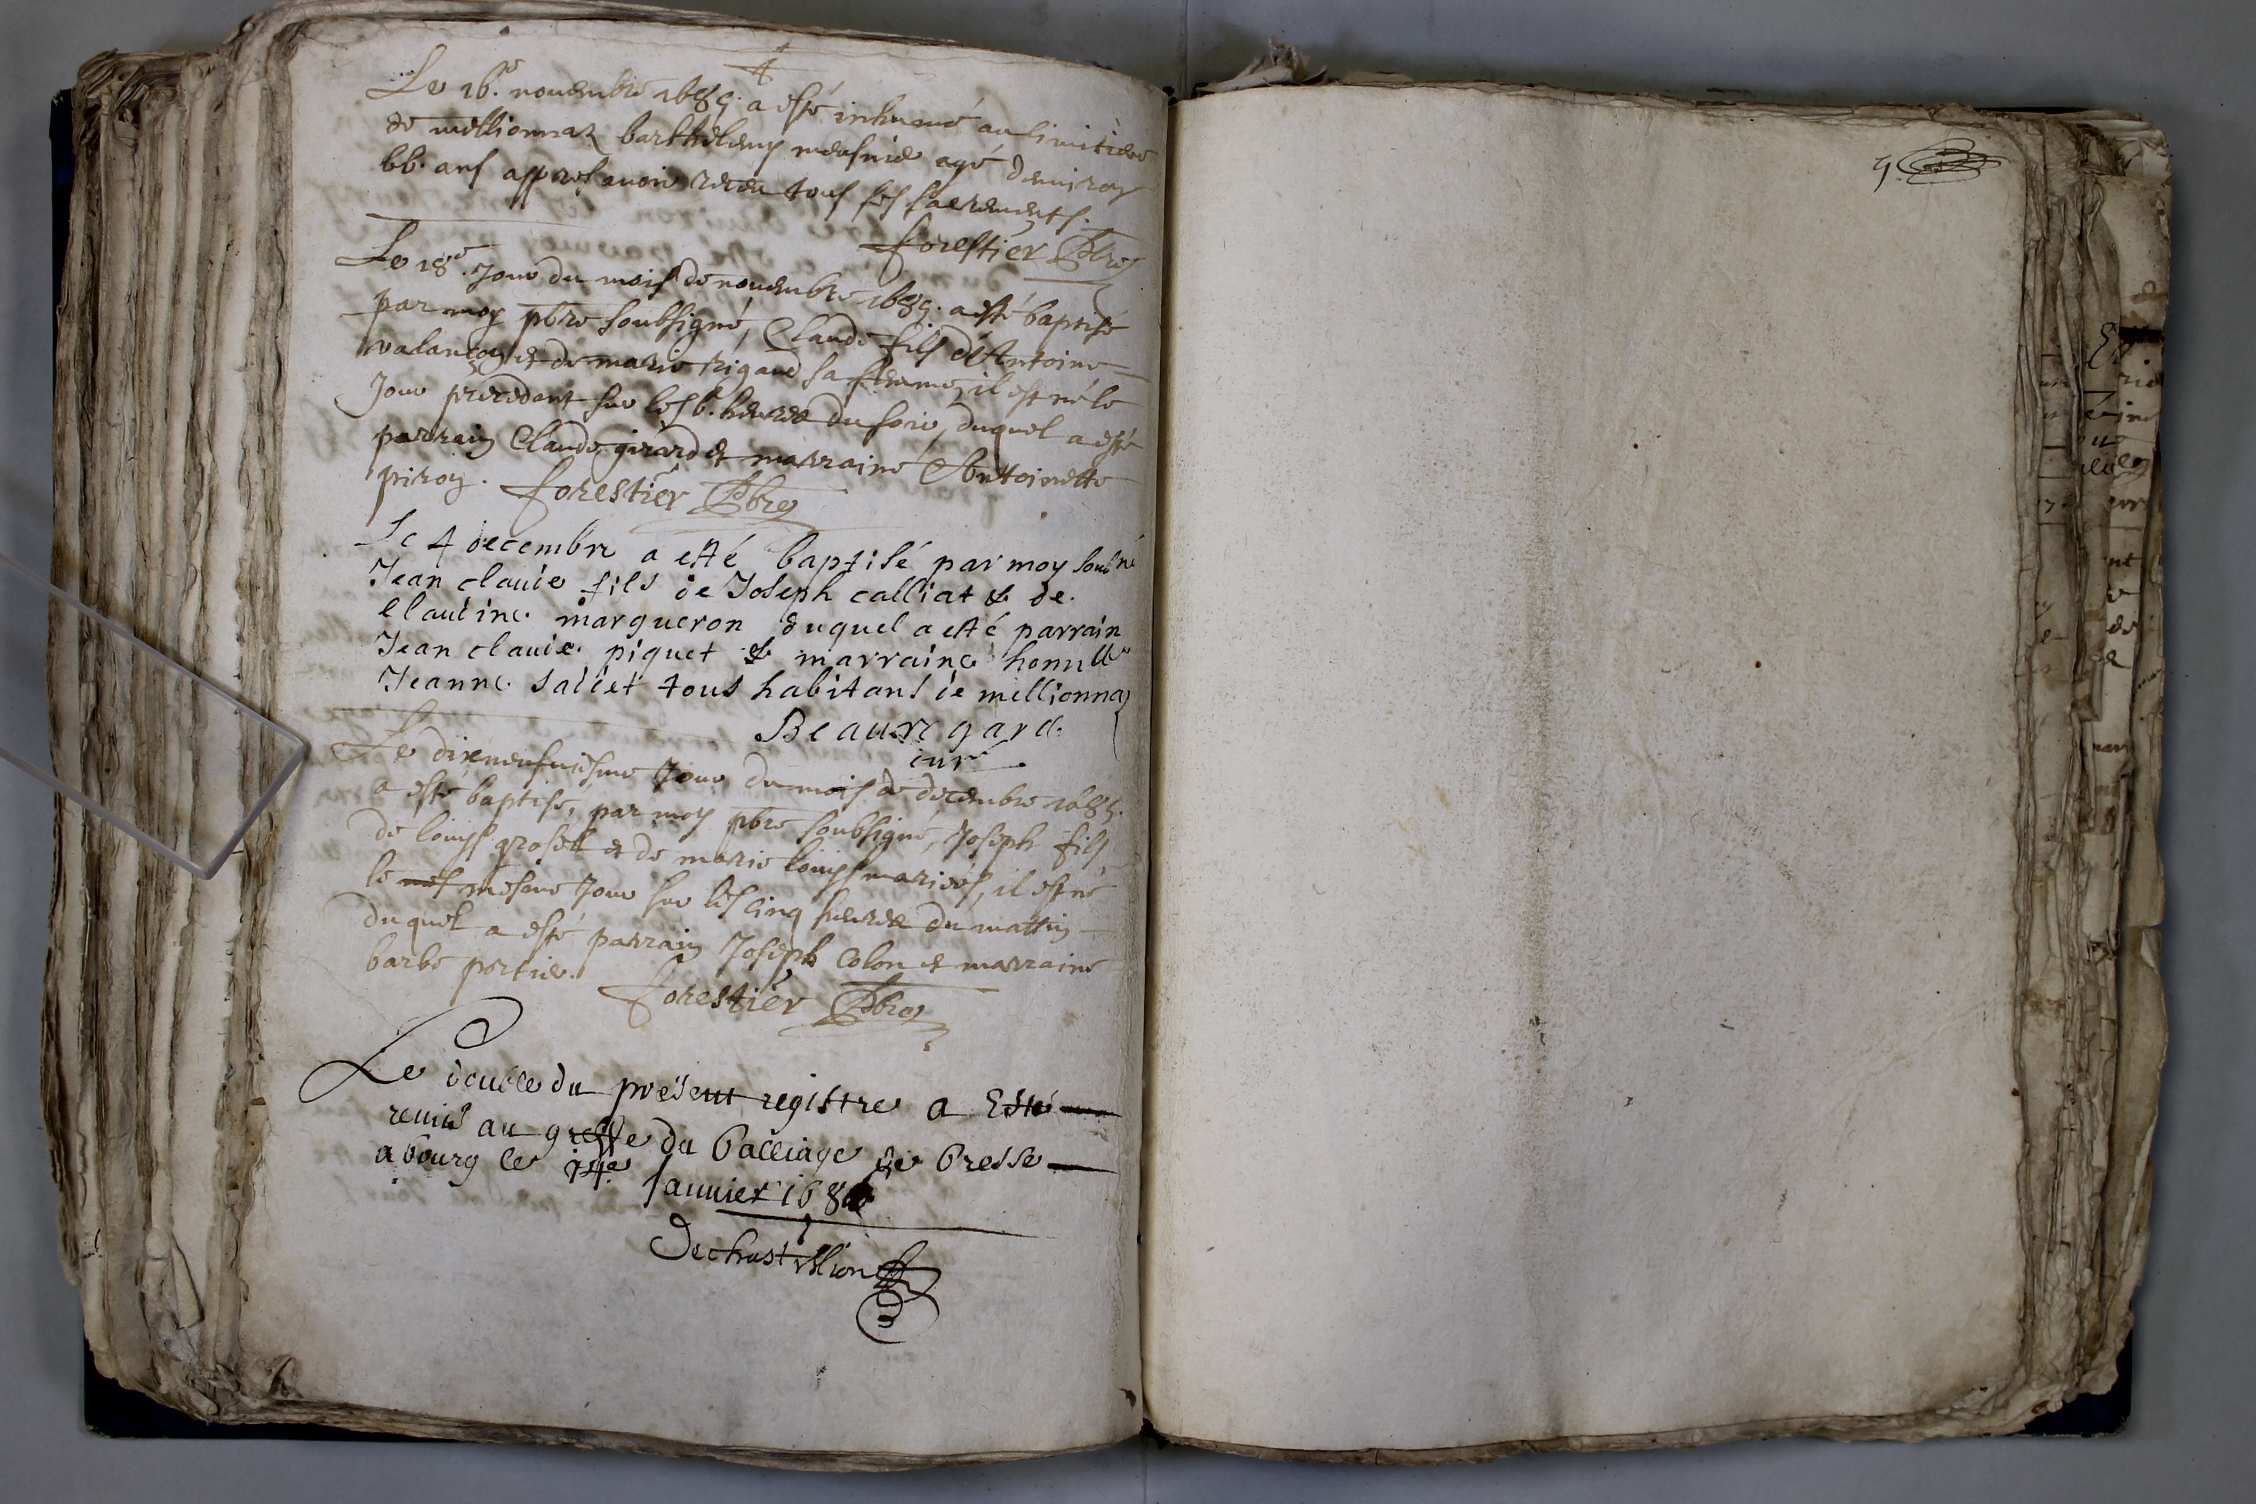 Le 16.e novembre 1685. a esté inhumé au simitiere
de millionnaz barthelemy mesnie agé denviron
66. ans appres avoir receu tous ses sacrements.
forestier pbre
Le 18.e Jour du mois de novembre 1685. a esté baptisé
par moy pbre soubsigné, Claude fils d'Antoine
valançon et de marie rigaud sa femme, il est né le
Jour precedant sur les 6. heures du soir, duquel a esté
parrain Claude girard et marraine Anttoinette
piron. forestier pbre
Le 4 decembre a esté baptisé par moy soubné
Jean claude fils de Joseph calliat & de
claudine margueron duquel a esté parrain
Jean claude piquet & marraine honnlle
Jeanne sallet tous habitans de millionnaz
Beauregard
curé
Le dixneufviesme Jour du mois de decembre 1685.
a esté baptisé, par moy pbre soubsigné, Joseph fils
de louys grosset et de marie louys mariés, il est né
le mesme Jour sur les cinq heures du mattin
duquel a esté parrain Joseph Colon et marraine
barbe portier.
forestier pbre
Le double du present registre a Esté
remis au greffe du balliage de bresse
a bourg le 14e Janvier 1686
Dechastillion
9